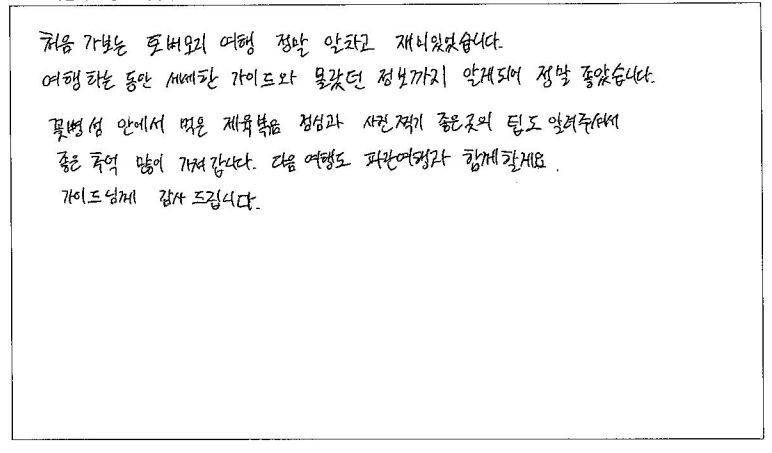 처음 가보는 토버모리 여행 정말 알차고 재미있었습니다.
여행하는 동안 세세한 가이드와 몰랐던 정보까지 알게되어 정말 좋았습니다.
꽃병섬 안에서 먹은 제육볶음 점심과 사진찍기 좋은곳의 팁도 알려주셔서
좋은 추억 많이 가져갑니다. 다음 여행도 파란여행과 함께할게요.
가이드님께 감사드립니다.